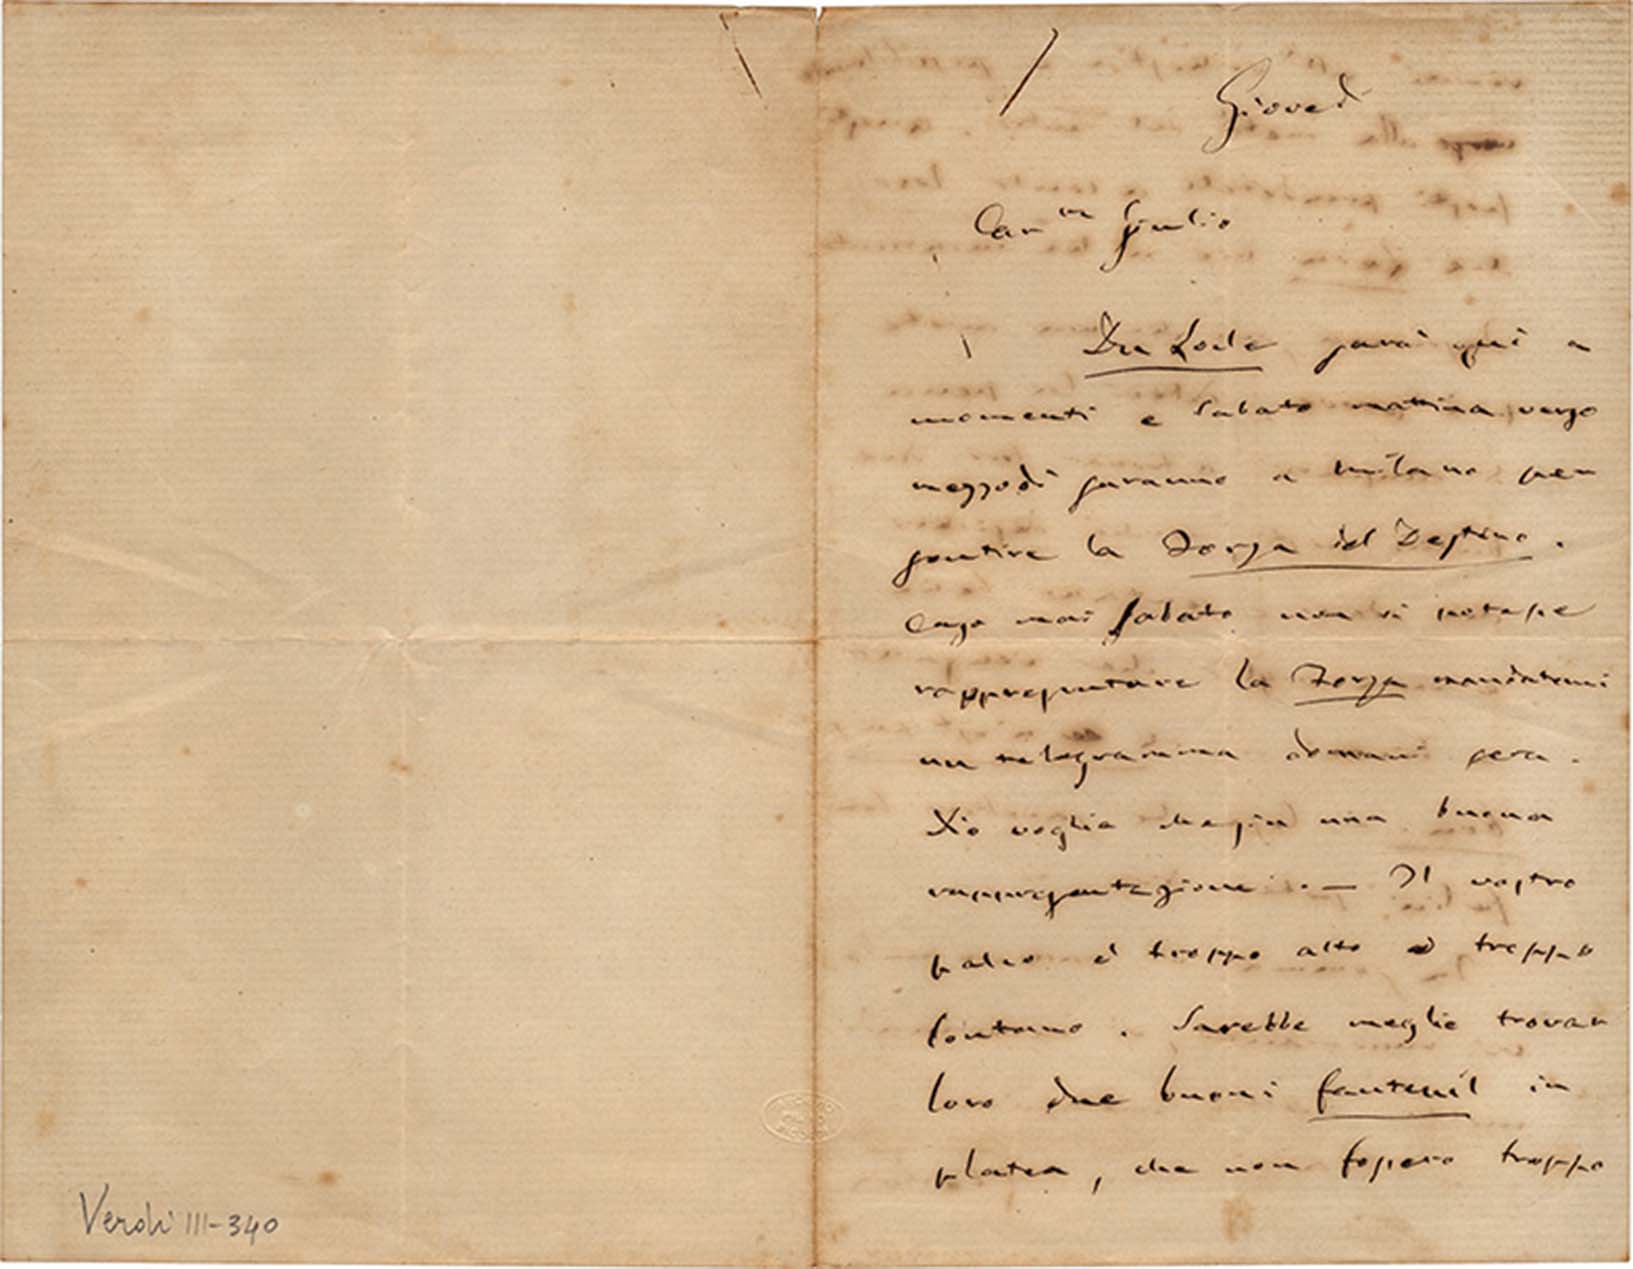 Giovedì
Car.mo Giulio
Du Locle sarà qui a
momenti e Sabato mattina verso
mezzodì saranno a Milano per
sentire la Forza del Destino.
Caso mai Sabato non si potesse
rappresentare la Forza mandatemi
un telegramma domani sera.
Dio voglia che sia una buona
rappresentazione. — Il vostro
palco è troppo alto e troppo
lontano. Sarebbe meglio trovar
loro due buoni fauteuil in
platea, che non fossero troppo
Verdi III-340